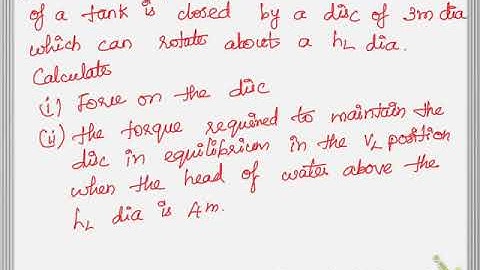 of a tank is closed by a disc of 3m dia
which can rotate about a hL dia.
Calculate
(i) Force on the disc
(ii) the torque required to maintain the
disc in equilibrium in the VL position
when the head of water above the
hL dia is 4m.